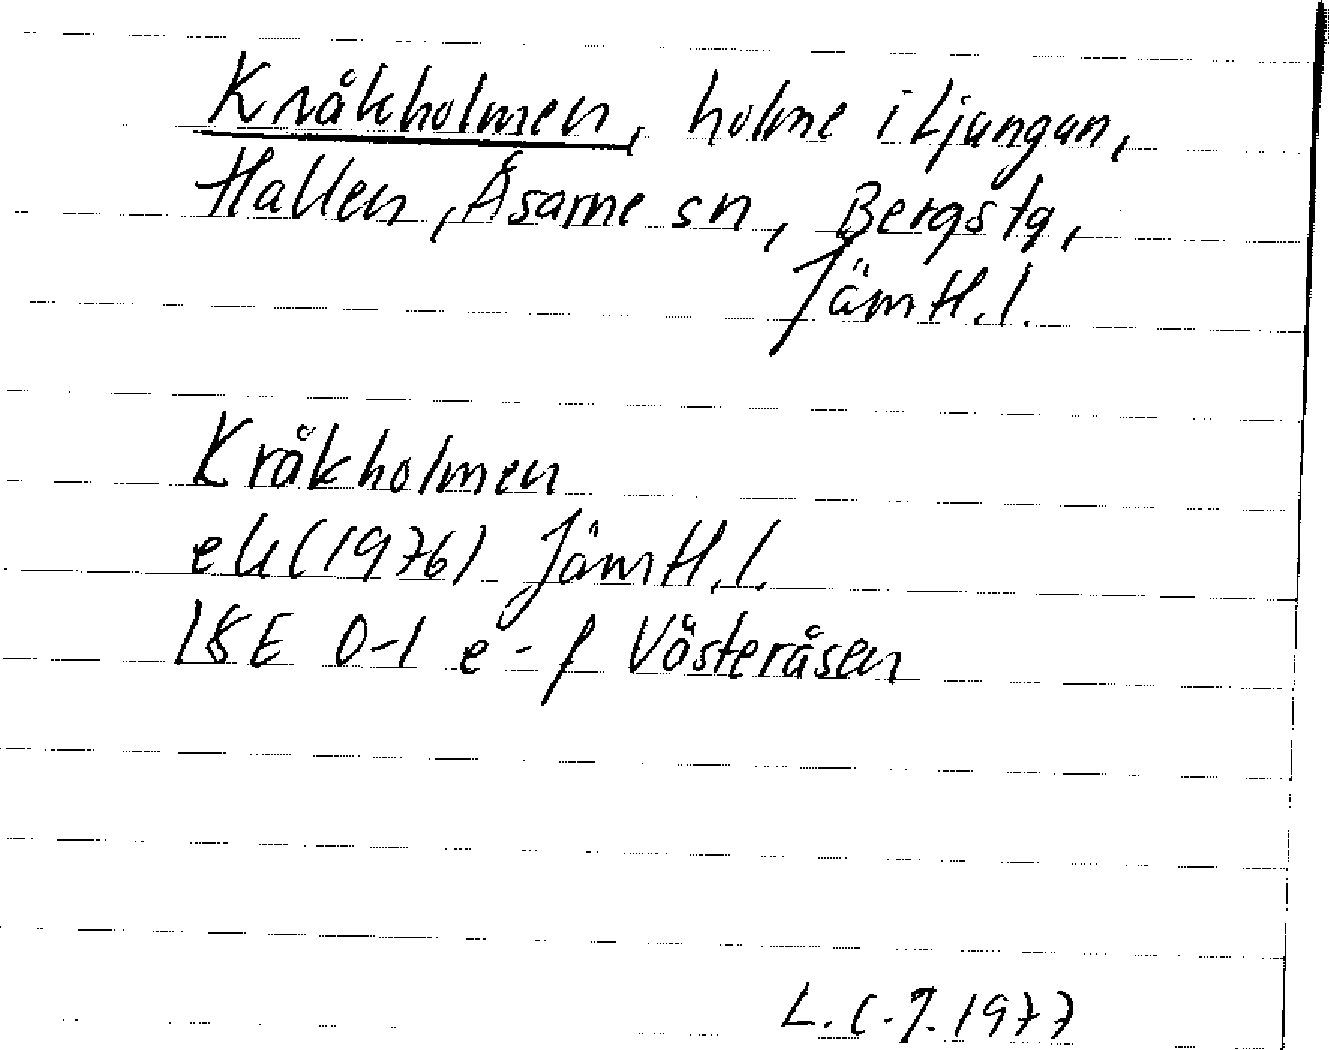 Kråkholmen, holme i Ljungan,
Hallen, Åsarne sn, Bergs tg,
Jämtl. l.
Kråkholmen
ek (1976) Jämtl. l.
18E 0-1 e-f Västeråsen
L. C-J. 1977